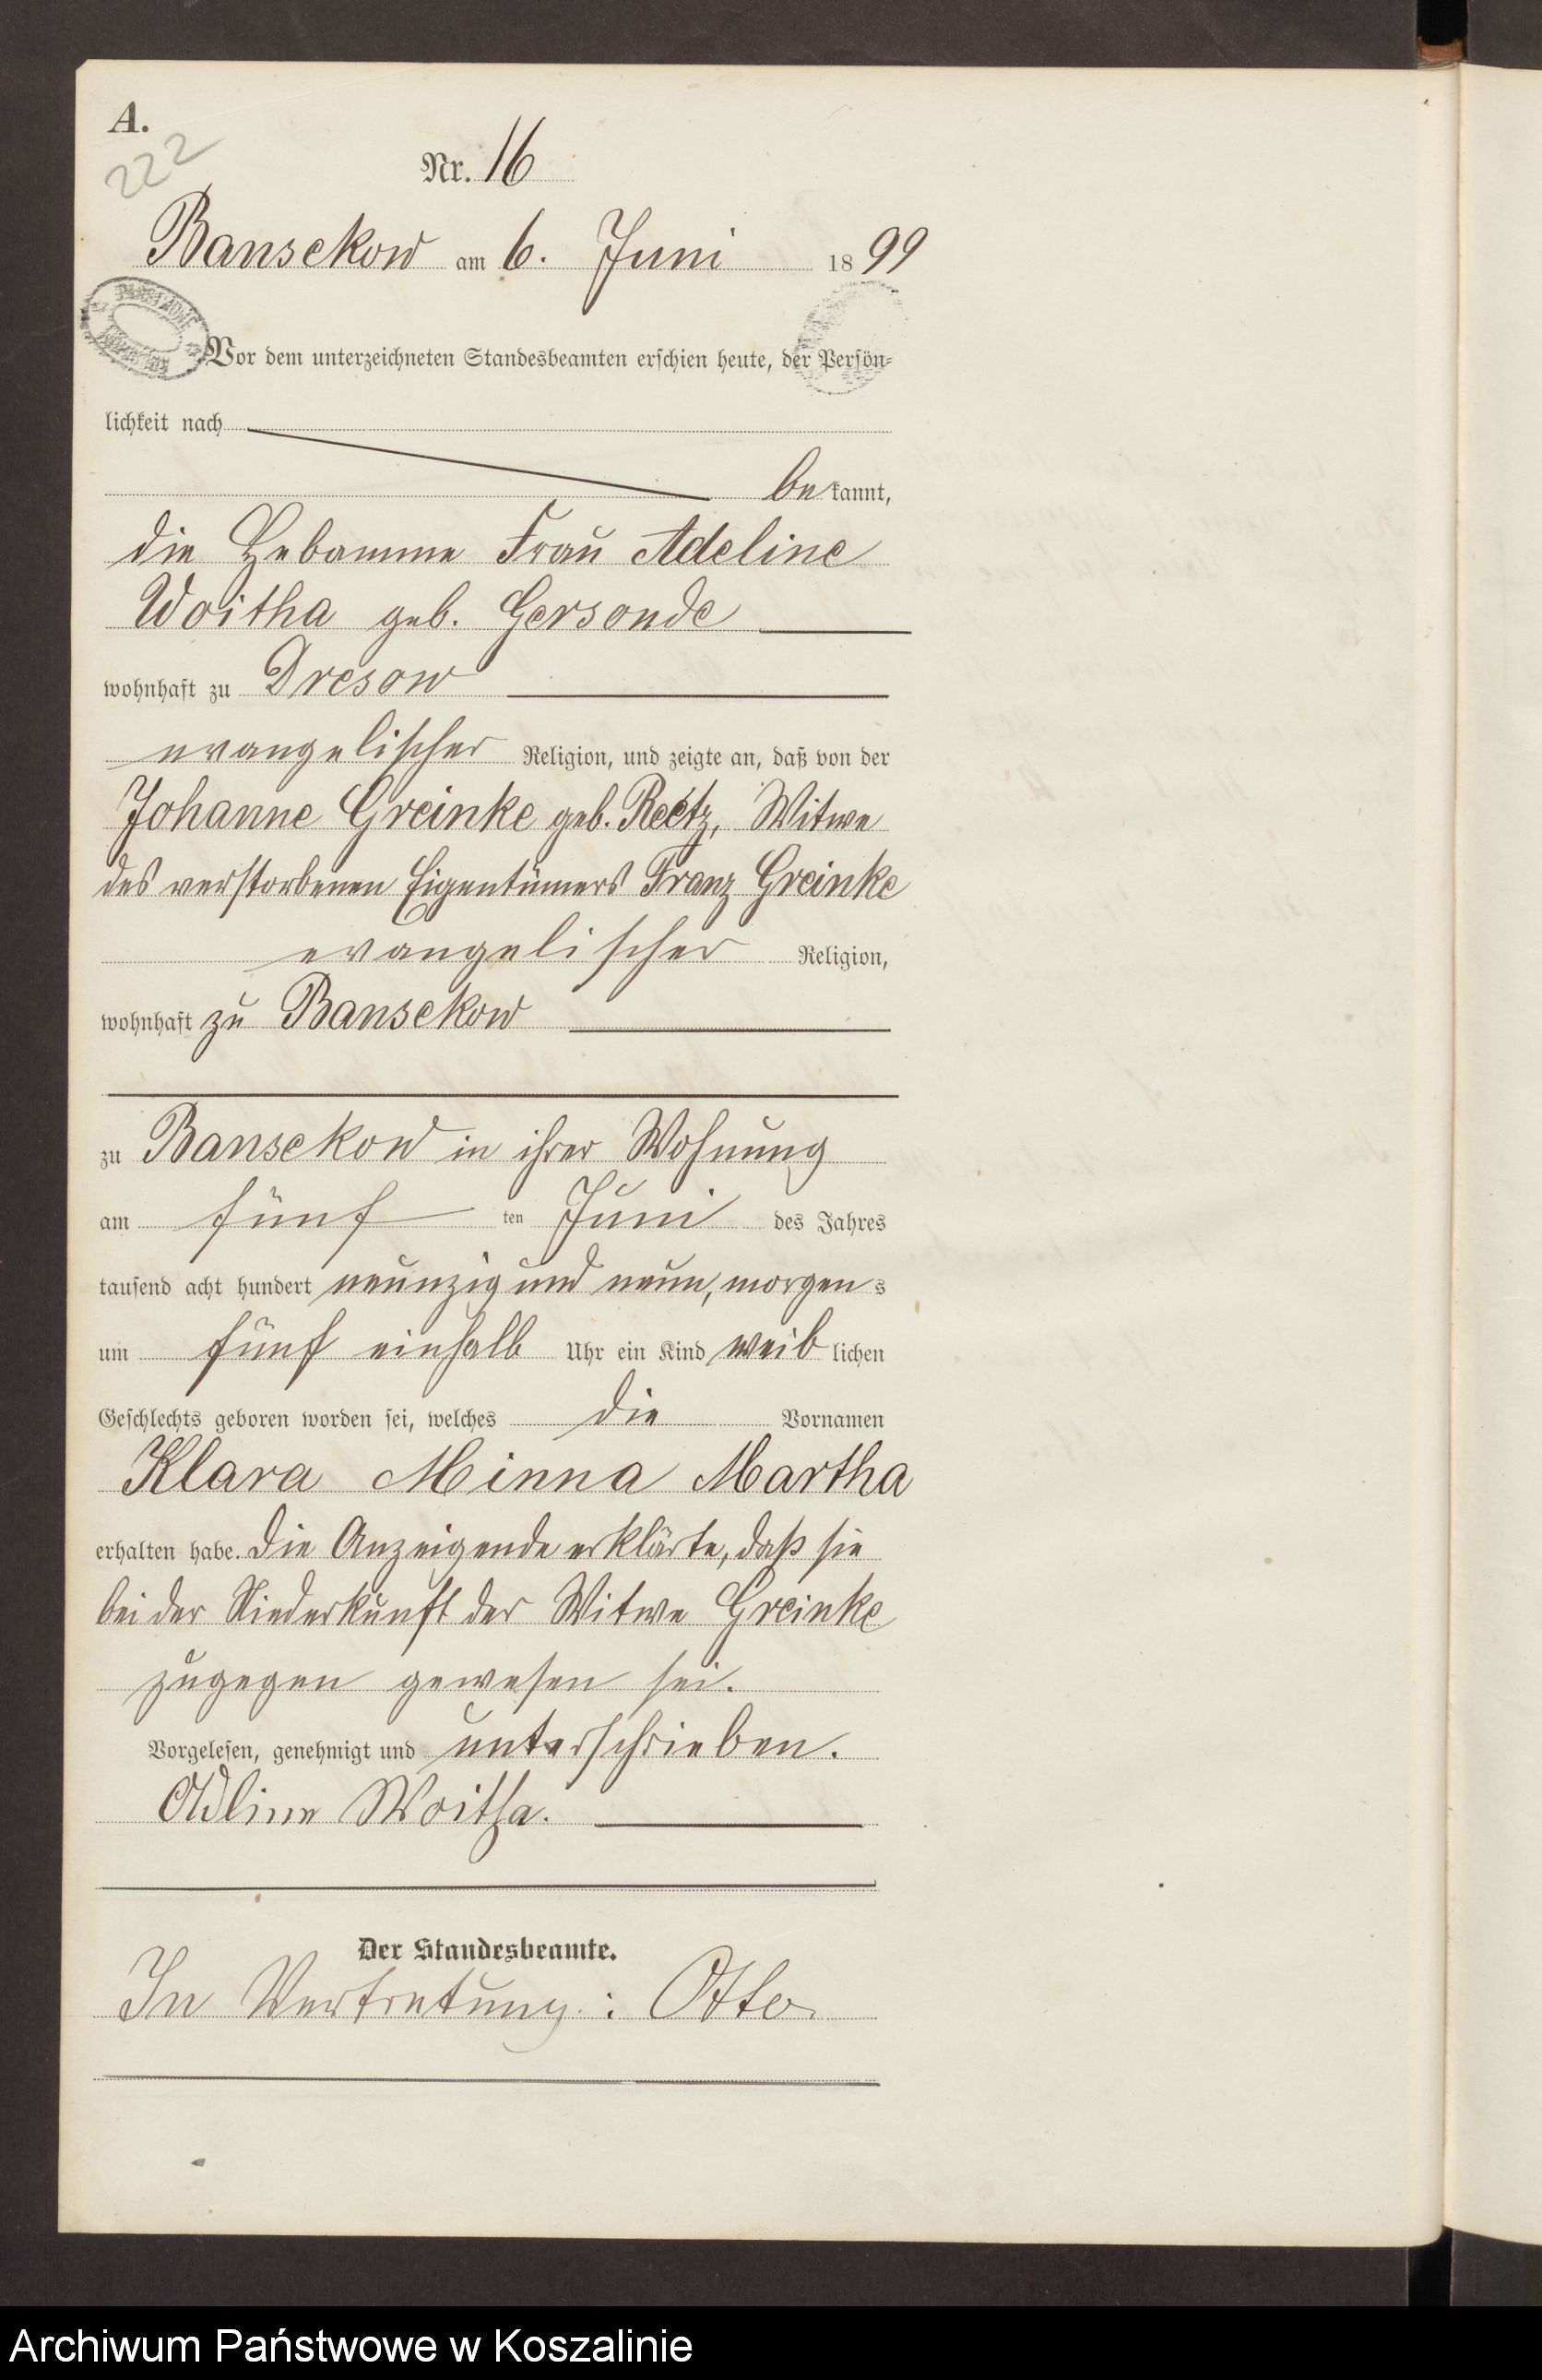 A.
222
Nr. 16
Bansekow am 6. Juni 1899
Vor dem unterzeichneten Standesbeamten erschien heute, der Persön-
lichkeit nach
bekannt,
die Hebamme Frau Adeline
Woitha geb. Gersonde
wohnhaft zu Dresow
evangelischer Religion, und zeigte an, daß von der
Johanne Greinke geb. Reetz, Witwe
des verstorbenen Eigentümers Franz Greinke
evangelischer Religion,
wohnhaft zu Bansekow
zu Bansekow in ihrer Wohnung
am fünf ten Juni des Jahres
tausend acht hundert neunzig und neun, morgens
um fünf einhalb Uhr ein Kind weiblichen
Geschlechts geboren worden sei, welches die Vornamen
Klara Minna Martha
erhalten habe. Die Anzeigende erklärte, daß sie
bei der Niederkunft der Witwe Greinke
zugegen gewesen sei.
Vorgelesen, genehmigt und unterschrieben.
Adline Woitha.
Der Standesbeamte.
In Vertretung: Otto
Archiwum Państwowe w Koszalinie